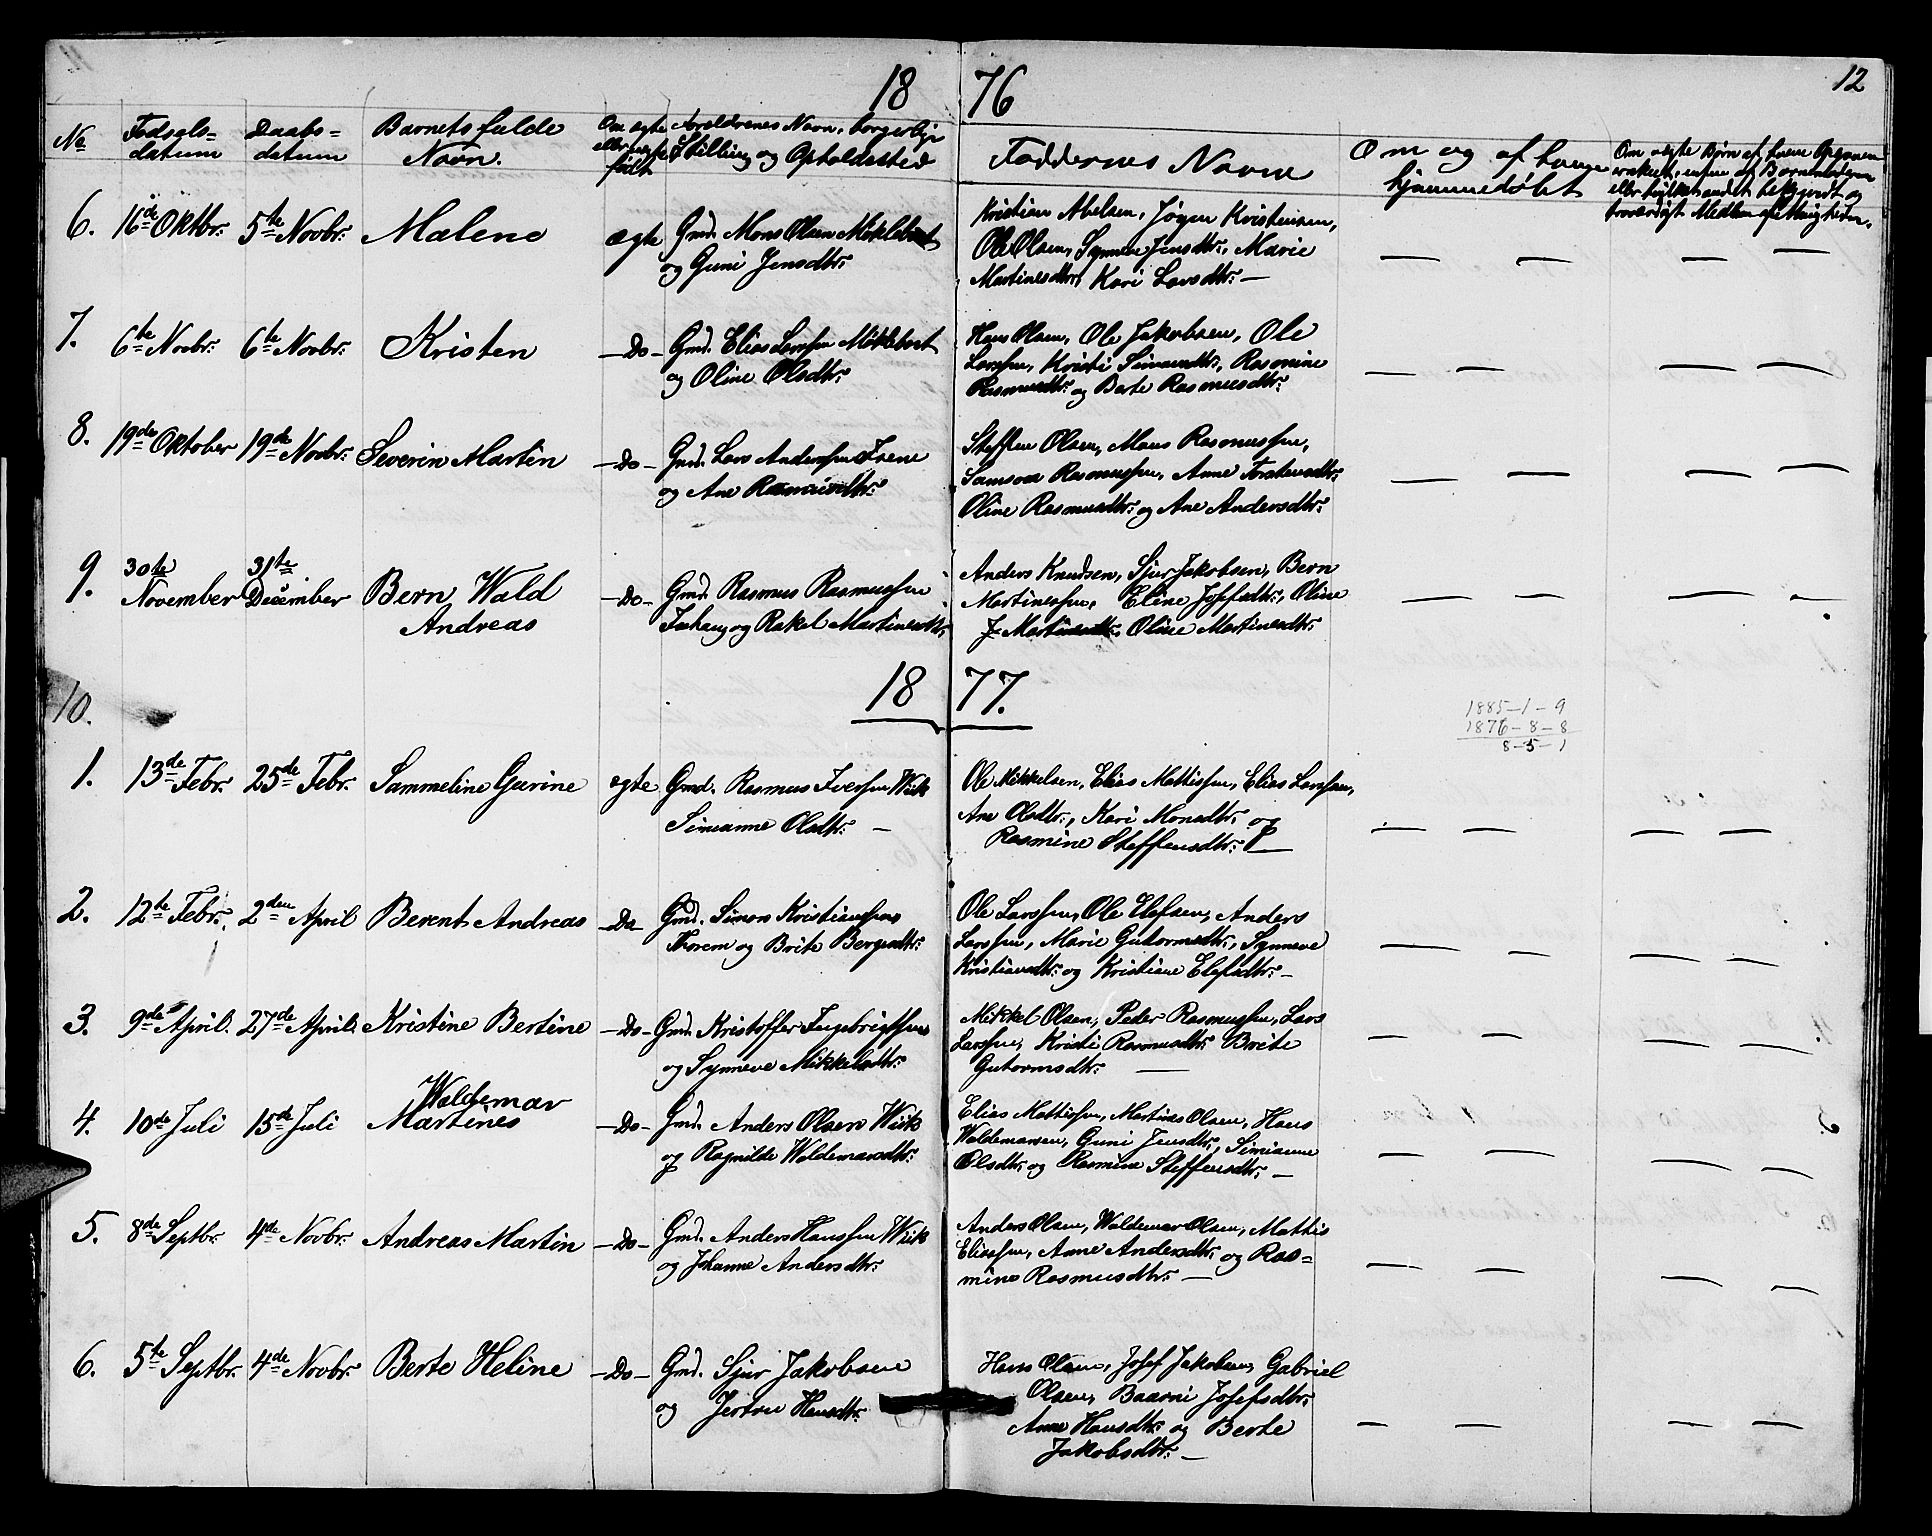 18 76
12
No
Fødsels=
datum
Daabs=
datum
Barnets fulde
Navn.
Om ægte
eller uægte
født
Forældrenes Navn, borgerlige
Stilling og Opholdssted
Faddernes Navne
Om og af hvem
hjemmedøbt
6. 16de Oktbr. 5te Novbr. Malene ægte Gmd. Mons Olsen Miklebost
og Guni Jensdtr.
Kristian Abelsen, Jøgen Kristensen,
Ole Olsen, Synneve Jensdtr., Marie
Martinesdtr, Kari Larsdtr. —
7. 6te Novbr. 6te Novbr. Kristen —Do— Gmd. Elias Larssen Miklebost
og Oline Olsdtr.
Hans Olsen, Ole Jakobsen, Ole
Larssen, Kristi Simonsdtr., Rasmine
Rasmusdtr. og Berte Rasmusdtr.
8. 19de Oktober 19de Novbr. Severin Martin —Do— Gmd. Lars Anderssen
og Ane Rasmusdtr.
Steffen Olsen, Mons Rasmussen,
Samson Rasmussen, Anne Torstensdtr.
Oline Rasmusdtr. og Ane Andersdtr.
9. 30te
November
31te
December
Bern Wald
Andreas
—Do— Gmd. Rasmus Rasmussen
og Rakel Martinesdtr.
Anders Knudsen, Sjur Jakobsen, Bern
Martinessen, Eline Josefsdtr., Oline
J. Martinesdtr., Oline Martinesdtr.
18 77.
10.
1885—1—9
1876—8—8
8—5—1
1. 13de Febr. 25de Febr. Sammeline Gurine ægte Gmd. Rasmus Iverssen Wiik
Simianne Olsdtr. —
Ole Mikkelsen, Elias Mattissen, Elias Larssen,
Ane Olsdtr., Kari Monsdtr. og
Rasmine Steffensdtr. —
2. 12te Febr. 2den April Berent Andreas —Do— Gmd. Simon Kristianssen
og Brite
Ole Larssen, Ole Elefsen, Anders
Larssen, Marie Gutormsdtr., Synneve
Kristiansdtr. og Kristiane Elefsdtr. —
3. 9de April. 27de April. Kristine Bertine —Do— Gmd. Kristoffer Ingebrigtsen
og Synneve Mikkelsdtr.
Mikkel Olsen, Peder Rasmussen, Lars
Larssen, Kristi Rasmusdtr. Brite
Gutormsdtr. —
4. 10de Juli 15de Juli Waldemar
Martines
—Do— Gmd. Anders Olsen Wiik
og Ragnilde Woldemarsdtr.
Elias Mattissen, Martines Olsen, Hans
Woldemarsen, Guni Jensdtr., Simianne
Olsdtr. og Rasmine Steffensdtr. —
5. 8de Septbr. 4de Novbr. Andreas Martin —Do— Gmd. Anders Hanssen Wiik
og Johanne Andersdtr.
Anders Olsen, Waldemar Olsen, Mattis
Eliassen, Anne Andersdtr. og Ras=
mine Rasmusdtr. —
6. 5te Septbr. 4de Novbr. Berte Heline —Do— Gmd. Sjur Jakobsen
og Jertru Hansdtr.
Hans Olsen, Josef Jakobsen, Gabriel
Olsen, Baarni Josefsdtr.
Anne Hansdtr. og Berte
Jakobsdtr. —